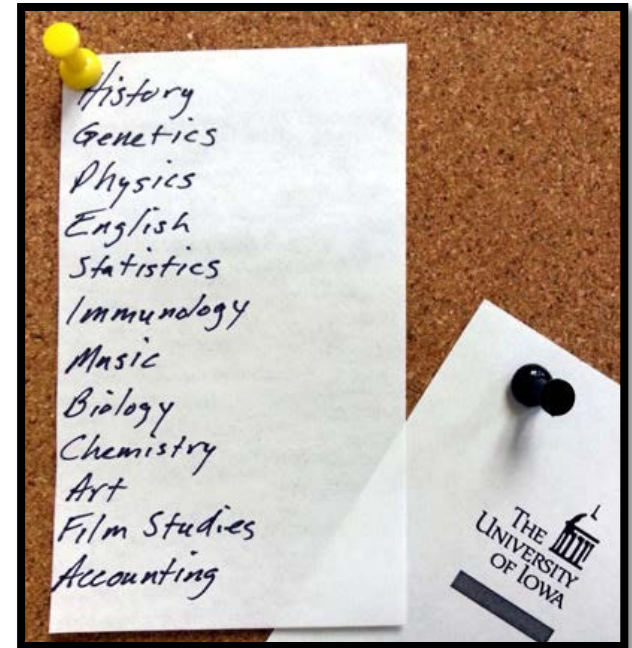 History
Genetics
Physics
English
Statistics
Immunology
Music
Biology
Chemistry
Art
Film Studies
Accounting
THE
UNIVERSITY
OF IOWA